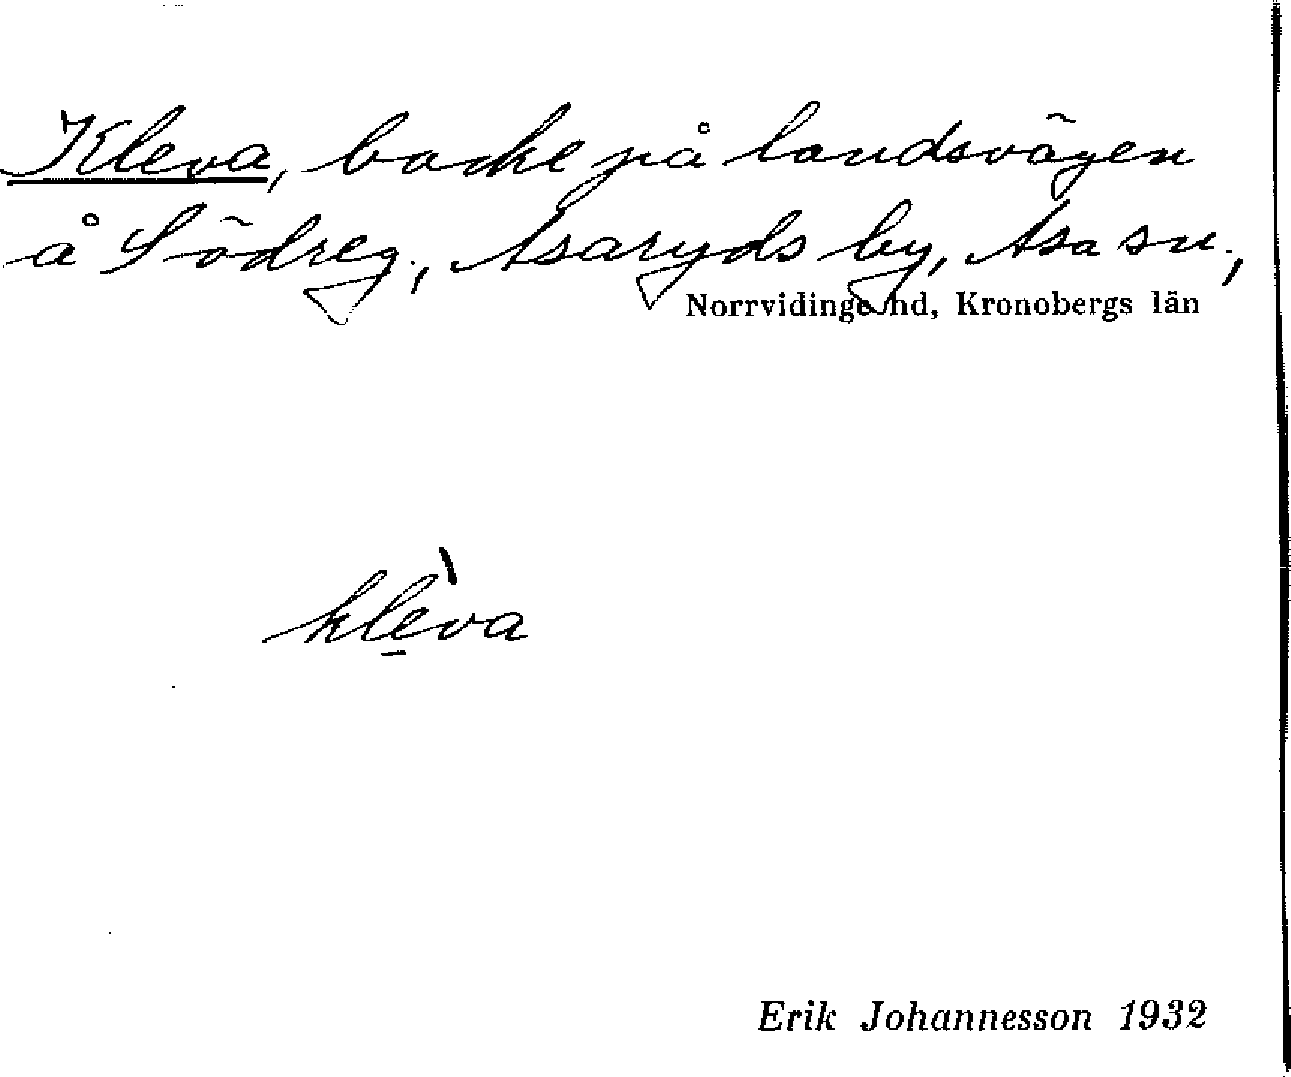 Kleva, backe på landsvägen
å Södreg., Asaryds by, Asa sn.,
Norrvidinge hd, Kronobergs län
klèva
Erik Johannesson 1932